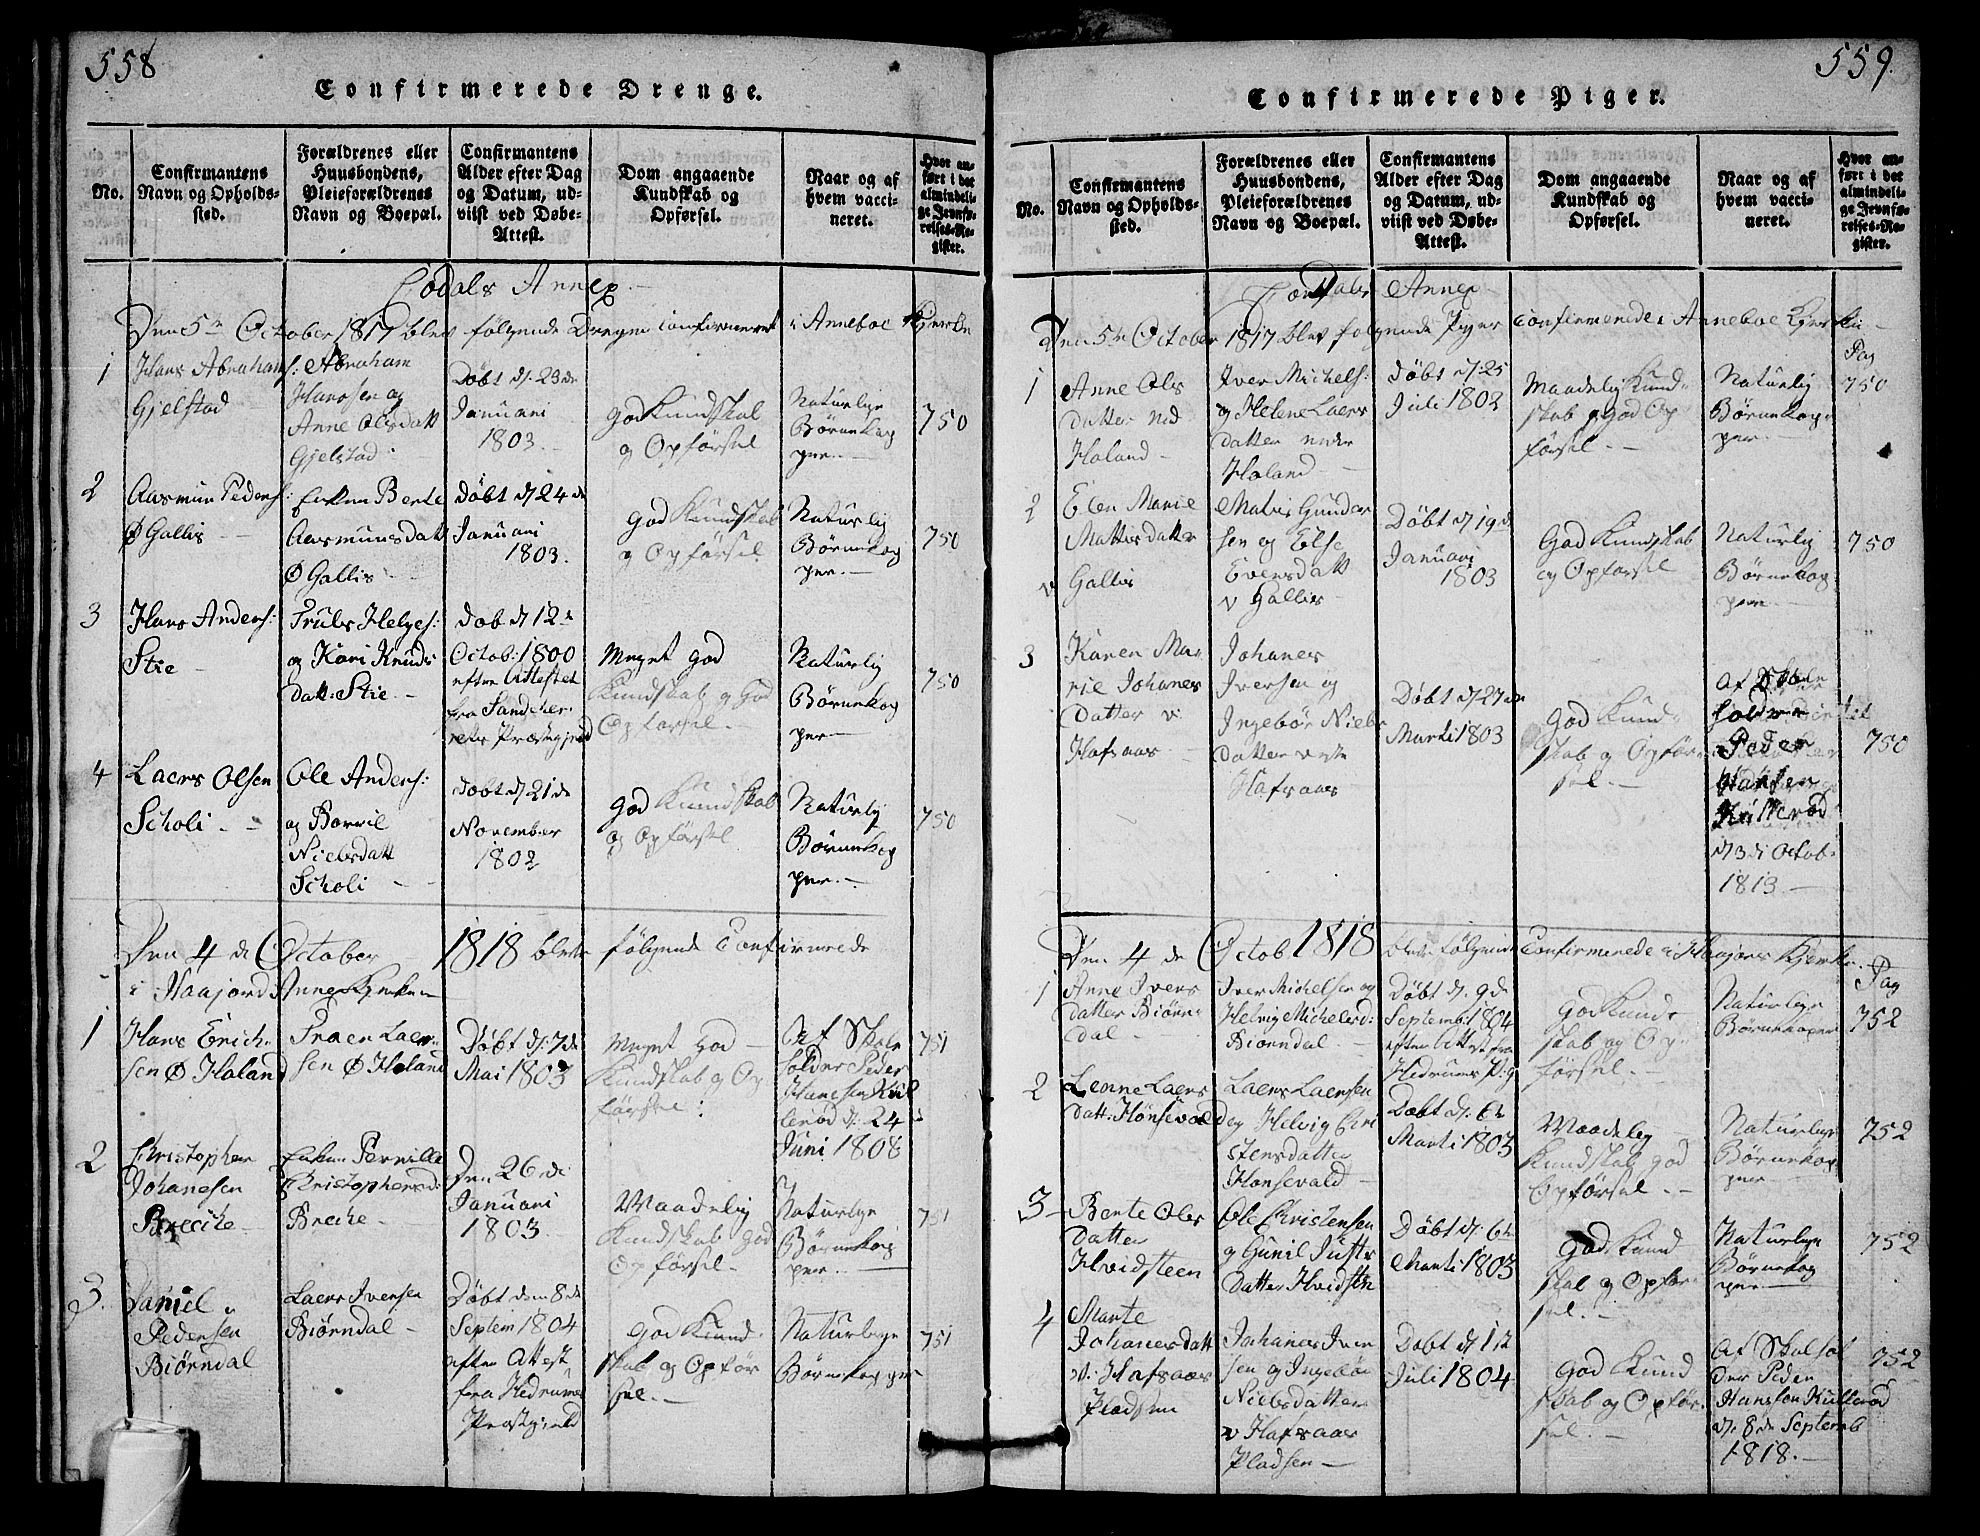 558
Confirmerede Drenge.
No.
Confirmantens
Navn og Opholds-
sted.
Forældrenes eller
Huusbondens,
Pleieforældrenes
Navn og Boepæl.
Confirmantens
Alder efter Dag
og Datum, ud-
viist ved Døbe-
Attest.
Dom angaaende
Kundskab og
Opførsel.
Naar og af
hvem vacci-
neret.
Hvor an-
ført i det
almindeli-
ge Jevnfø-
relses-Re-
gister.
Annex
Den 5te October 1817 blev følgende Drenge confirmeret i Anneboe Kjerke
1
Hans Abrahams:
Gjelstad
Abraham
Hansen og
Anne Olsdatt
Gjelstad
Døbt d. 23de
Januari
1803.
god Kundskab
og Opførsel
Naturlige
Børnekop
per
750
2
Aasmun Peders:
Ø Gallis
Enken Berte
Aasmunsdatt
Ø Gallis
Døbt d 24de
Januari
1803.
god Kundskab
og Opførsel
Naturlig
Børnekop
per
750
3
Hans Anders:
Stie
Truls Helges:
og Kari Knuds
datt: Stie
døb d 12te
Octob: 1800
efter Attestet
fra Sandeher
reds Præstegjeld
Meget god
Kundskab og God
Opførsel
Naturlig
Børnekop
per
750
4
Laers Olsen
Scholi
Ole Anders:
og Borril
Nielsdatt
Scholi
døbt d 21de
November
1802
god Kundskab
og Opførsel
Naturlig
Børnekop
per
750
Den 4de October 1818 blev følgende Confirmerede
i Haajord Annex Kjerken
1
Hans Erich-
sen Ø Holand
Laer-
sen Ø Holand
Døbt d. 7de
Mai 1803
Meget God
Kundskab og Op
førsel:
Af Skole
solder Peder
Hansen Kul
lerød d. 24
Juni 1808
751
2
Christopher
Johanesen
Brecke
Enken Pernille
Christophersd:
Brecke
Den 26de
Januari
1803.
Maadelig
Kundskab god
Opførsel
Naturlige
Børnekop
per
751
3.
Daniel
Pedersen
Biørndal
Laers Iversen
Biørndal
Døbt den 8de
Septem 1804
efter Attest
fra Hedrums
Præstgield
god Kund
skab og Opfør
sel.
Naturlige
Børnekopper
751
559.
Confirmerede Piger.
No.
Confirmantens
Navn og Opholds-
sted.
Forældrenes eller
Huusbondens,
Pleieforældrenes
Navn og Boepæl.
Confirmantens
Alder efter Dag
og Datum, ud-
viist ved Døbe-
Attest.
Dom angaaende
Kundskab og
Opførsel.
Naar og af
hvem vacci-
neret.
Hvor an-
ført i det
almindeli-
ge Jevnfø-
relses-Re-
gister.
Annex
Den 5te October 1817 blev følgende Piger confirmerede i Anneboe Kjerke
Pag
1
Anne Ols
datter ned
Holand
Iver Michels:
og Helene Laers
datter neder
Holand
Døbt d. 25
Juli 1802
Maadelig Kund-
skab og god Op
førsel.
Naturlig
Børnekop-
per
750
2
Elen Marie
Mattisdatter
v Gallis
Matis Gunder
sen og Else
Evensdatt
v Gallis
Døbt d 19de
Januari
1803
God Kundskab
og Opførsel
Naturlig
Børnekop
per
750
3
Karen Ma
rie Johanes
datter v
Hafsaas
Johanes
Iversen og
Ingebør Niels
datter
Hafsaas
Døbt d. 27de
Marti 1803
God Kund-
skab og Opfør-
sel.
Af Skole
Peder
Hansen
Kullerød
d 3di Octob.
1813
750
Den 4de Octob 1818 blev følgende Confirmerede i Haajors Kjerke
Pag
1
Anne Ivers
datter Biørn
dal
Iver Michelsen og
Helvig Michelsd:
Biørndal
Døbt d. 9de
Septemb: 1804
efter Attest fra
Hedrums P:g
God Kund-
skab og Op-
førsel.
Naturlige
Børnekopper
752
2
Lenne Laers
datt: Hønsevald
Laers Laersen
og Helvig Chri
stensdatter
Honsevald
Døbt d. 6te
Marti 1803
Maadelig
Kundskab god
Opførsel.
Naturlige
Børnekop
per
752
3
Bente Ols
datter
Hvidsteen
Ole Christensen
og Gunil Justs
datter Hvidsten
Døbt d. 6te
Marti 1803
God Kund
skab og Opfør
sel.
Naturlige
Børnekop
per
752
4
Marte
Johanesdatt
v. Hafsaas
Pladsen
Johanes Iver
sen og Ingebør
Nielsdatter
v Hafsaas
Pladsen
Døbt d 1ste
Juli 1804
God Kund
skab og Opfør-
sel.
Af Skolsol
der Peder
Hansson Kullerød
d. 8de Septemb
1818.
752